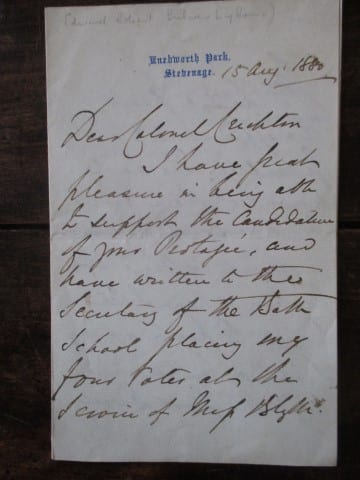 (Edward Robert Bulwer Lytton)
Knebworth Park,
Stevenage.
15 Aug: 1880
Dear Colonel Crichton
I have great
pleasure in being able
to support the Candidature
of your Protégée, and
have written to the
Secretary of the Bath
School placing my
four votes at the
service of Miss Blyth.